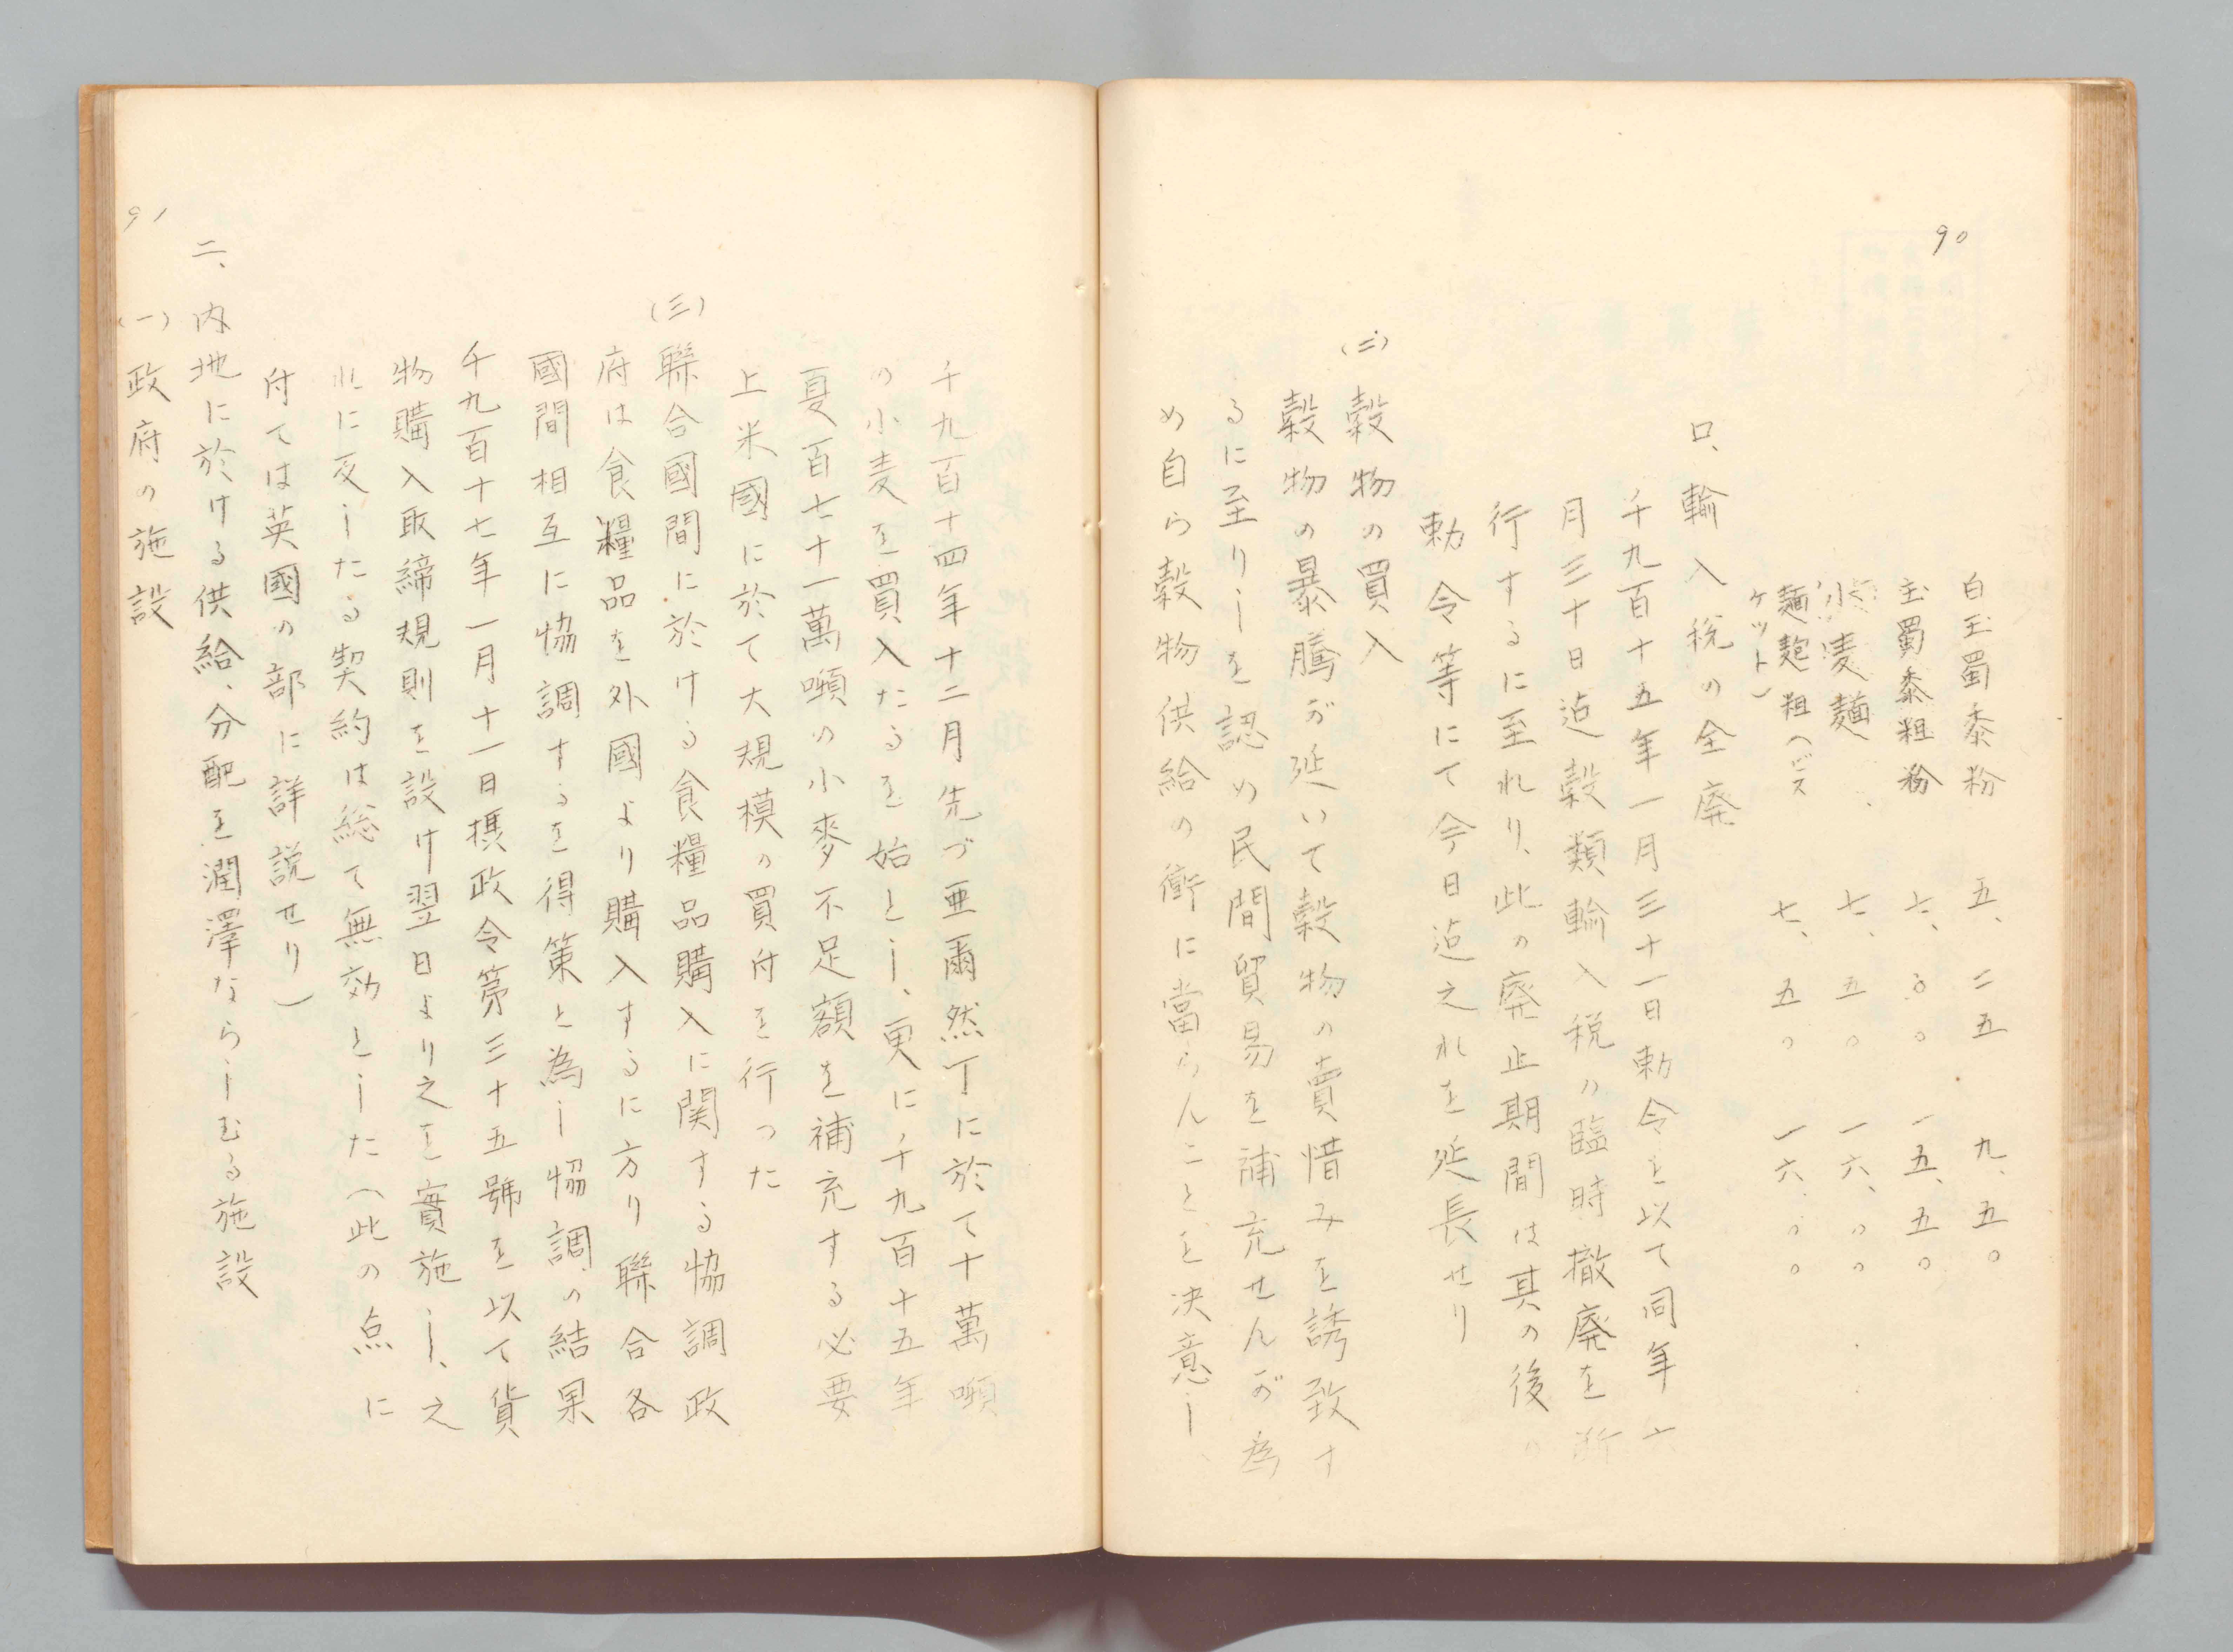 90
白玉蜀黍粉 五、二五 九、五〇
玉蜀黍粗粉 七、〇〇 一五、五〇
小麦麺 七、五〇 一六、〇〇
麺麭粗(ビス 七、五〇 一六、〇〇
ケット)
ロ、輸入税の全廃
千九百十五年一月三十一日勅令を以て同年六
月三十日迠穀類輸入税の臨時撤廃を断
行するに至れり、此の廃止期間は其の後の
勅令等にて今日迠之れを延長せり
(二)穀物の買入
穀物の暴騰が延いて穀物の賣惜みを誘致す
るに至りしを認め民間貿易を補充せんが為
め自ら穀物供給の衝に當らんことを決意し、
千九百十四年十二月先づ亜爾然丁に於て十萬噸
の小麦を買入たるを始とし、更に千九百十五年
夏百七十一萬噸の小麥不足額を補充する必要
上米國に於て大規模の買付を行った
(三)聯合國間に於ける食糧品購入に関する協調政
府は食糧品を外國より購入するに方り聯合各
國間相互に協調するを得策と為し協調の結果
千九百十七年一月十一日摂政令第三十五號を以て貨
物購入取締規則を設け翌日より之を實施し、之
れに反したる契約は総て無効とした(此の点に
付ては英國の部に詳説せり)
二、内地に於ける供給、分配を潤澤ならしむる施設
(一)政府の施設
91